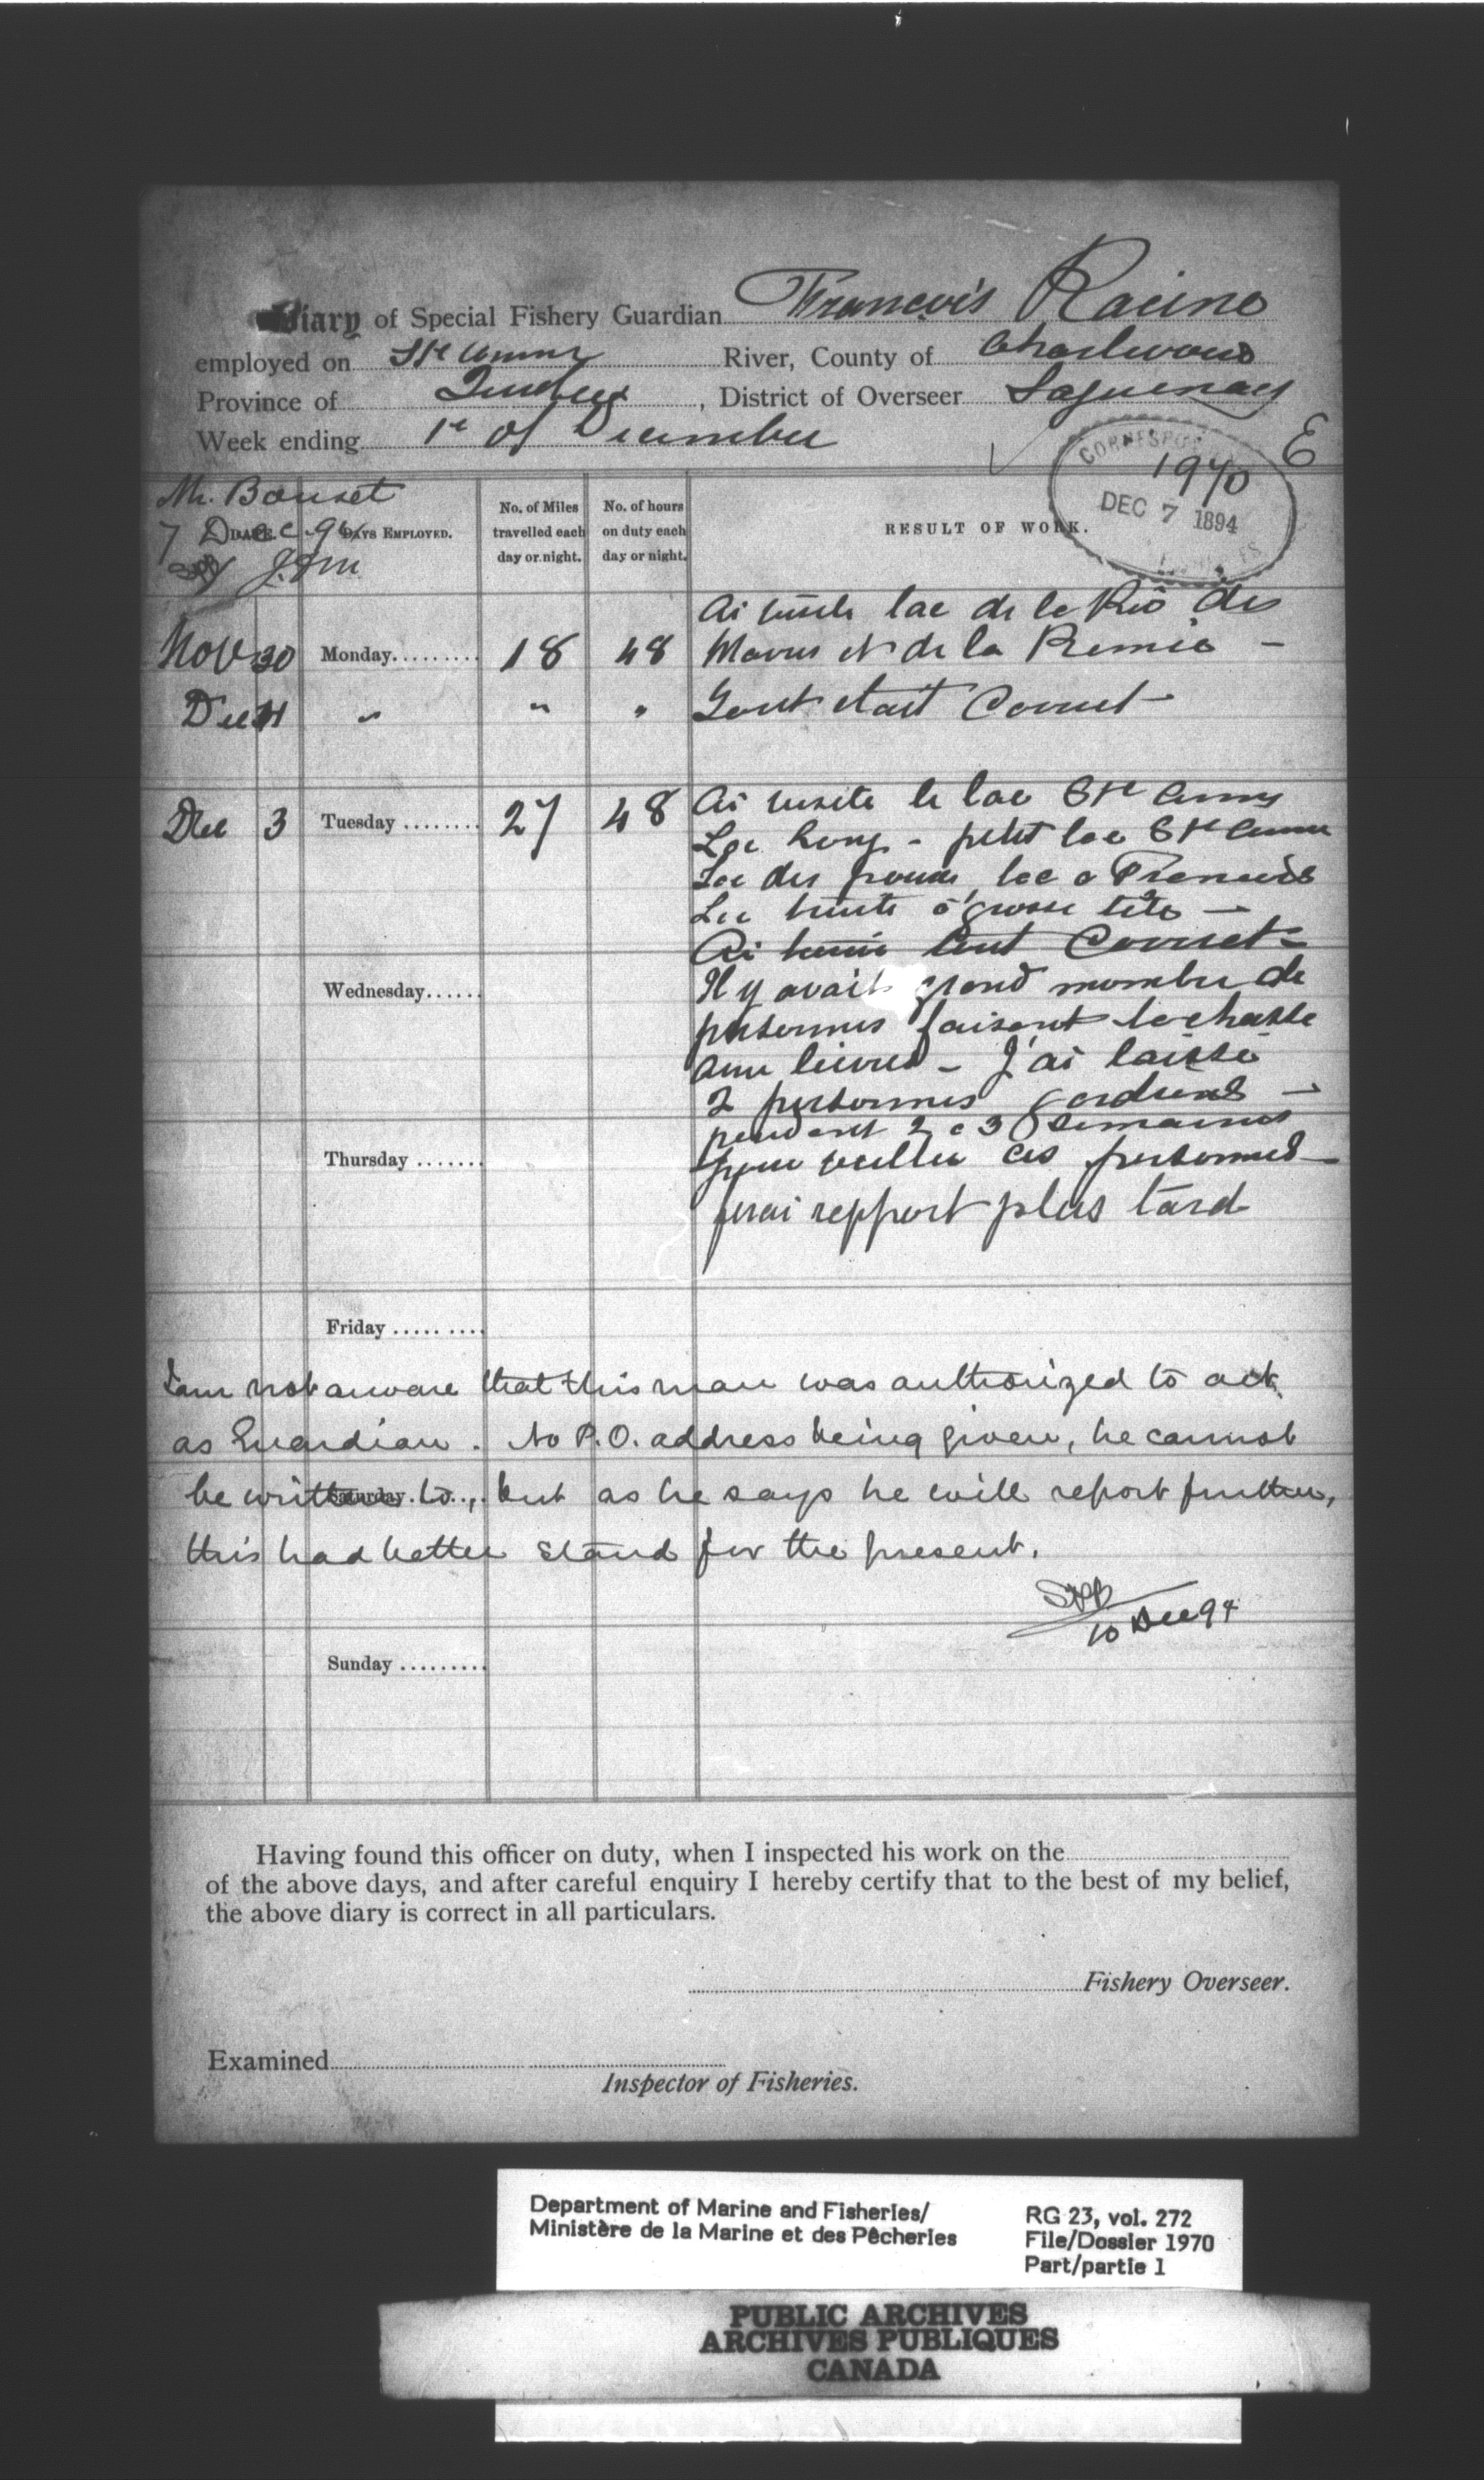 Diary of Special Fishery Guardian François Racine
employed on Ste Anne River, County of Charlevoix
Province of Quebec, District of Overseer Saguenay
Week ending 1er of December
E
CORRESPON
1970
DEC 7 1894
Mr. Bauset
7 Dec 94
DATE. DAYS EMPLOYED.
No. of Miles travelled each day or night.
No. of hours on duty each day or night.
RESULT OF WORK.
Ai visité lac de la
Nov 30 Monday 18 48 et de la
Dec " " " Tout était Correct
Dec 3 Tuesday 27 48 Ai visité le lac Ste Anne
Lac Long - petit lac Ste Anne
Lac des lac a François
Lac truite à grosse tête —
Ai trouvé tout Correct -
Wednesday Il y avait grand nombre de
personnes faisant la chasse
aux lièvres - J'ai laissé
2 personnes gardiens —
pendant 2 a 3 semaines
Thursday pour veiller ces personnes —
ferai rapport plus tard
Friday
I am not aware that this man was authorized to act
as Guardian. No P.O. address being given, he cannot
Saturday
be written to, but as he says he will report further,
this had better stand for the present.
10 Dec 94
Sunday
Having found this officer on duty, when I inspected his work on the
of the above days, and after careful enquiry I hereby certify that to the best of my belief,
the above diary is correct in all particulars.
Fishery Overseer.
Examined
Inspector of Fisheries.
Department of Marine and Fisheries/
Ministère de la Marine et des Pêcheries
RG 23, vol. 272
File/Dossier 1970
Part/partie 1
PUBLIC ARCHIVES
ARCHIVES PUBLIQUES
CANADA